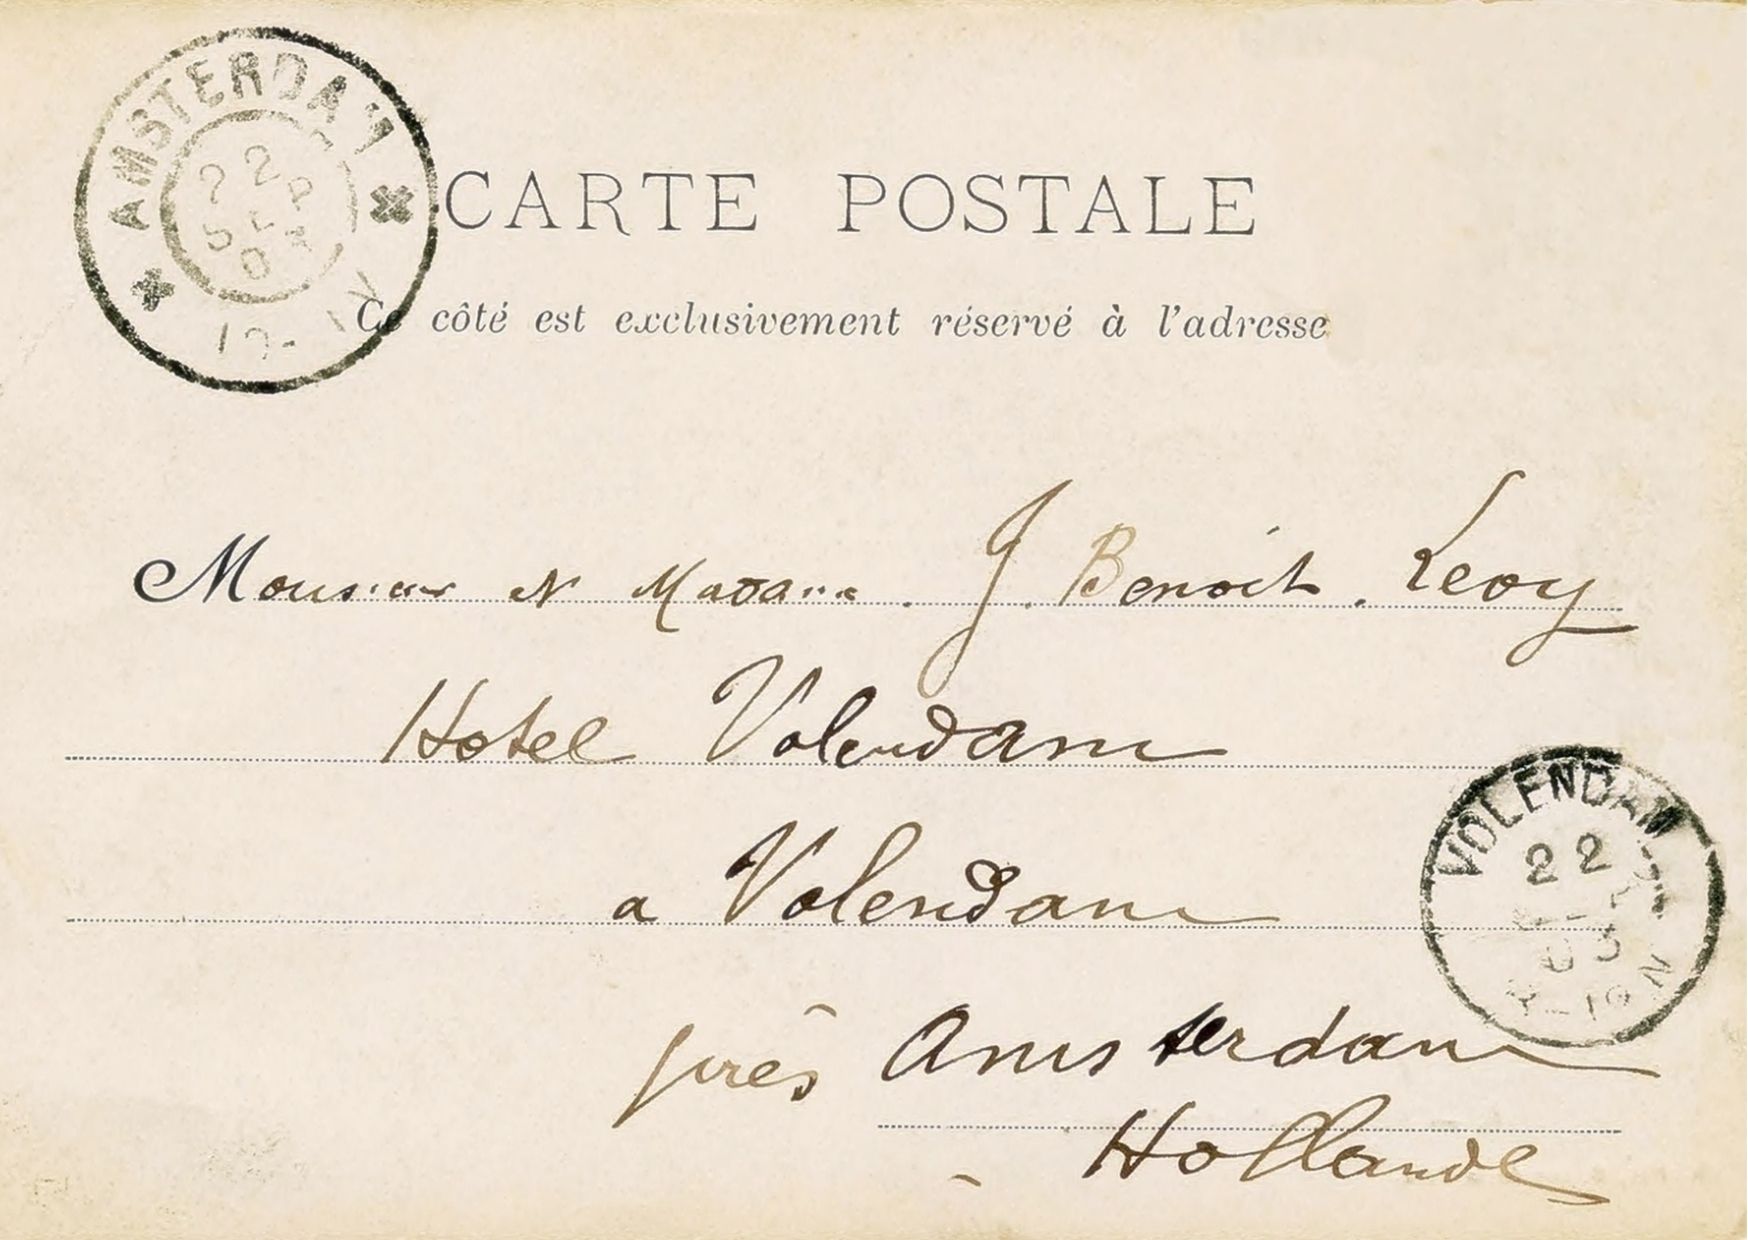 AMSTERDAM
22 SEP 03
CARTE POSTALE
Ce côté est exclusivement réservé à l'adresse
Monsieur et Madame J. Benoit. Levy
Hotel Volendam
a Volendam
VOLENDAM
22
03
près Amsterdam
Hollande